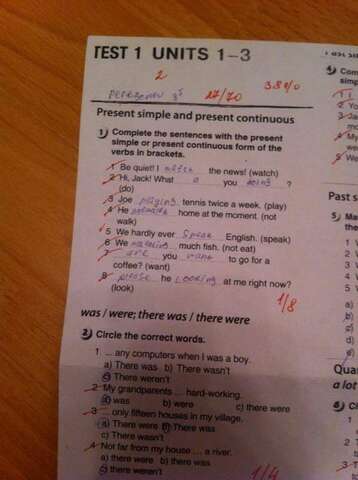 TEST 1 UNITS 1–3
2
27/70
38%
Present simple and present continuous
1 Complete the sentences with the present
simple or present continuous form of the
verbs in brackets.
1 Be quiet! I the news! (watch)
2 Hi, Jack! What a you doing ?
(do)
3 Joe playing tennis twice a week. (play)
4 He home at the moment. (not
walk)
5 We hardly ever speak English. (speak)
6 We much fish. (not eat)
7 are you want to go for a
coffee? (want)
8 he looking at me right now?
(look)
1/8
was / were; there was / there were
2 Circle the correct words.
1 ... any computers when I was a boy.
a) There was b) There wasn't
c) There weren't
2 My grandparents ... hard-working.
a) was b) were c) there were
3 ... only fifteen houses in my village.
a) There were b) There was
c) There wasn't
4 Not far from my house ... a river.
a) there were b) there was
c) there weren't
1/4
Past s
Qua
a lot